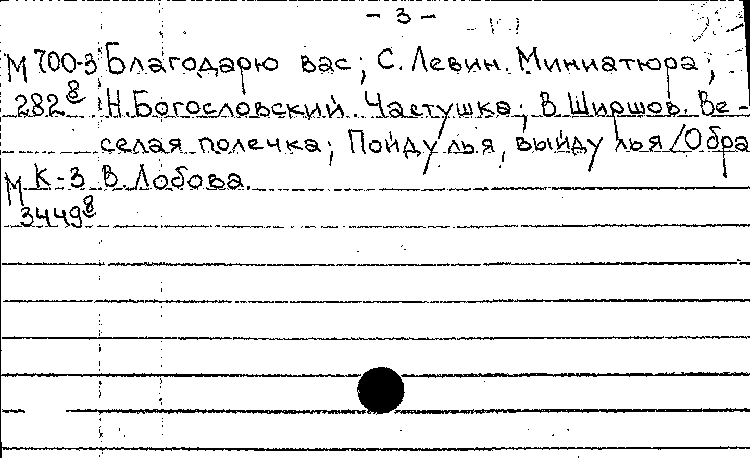 - 3 -
М 700-3 Благодарю вас; С. Левин. Миниатюра;
282 8 Н. Богословский. Частушка; В. Ширшов. Ве-
селая полечка; Пойду лья, выйду лья/Обра
М К-3 В. Лобова.
3449 8